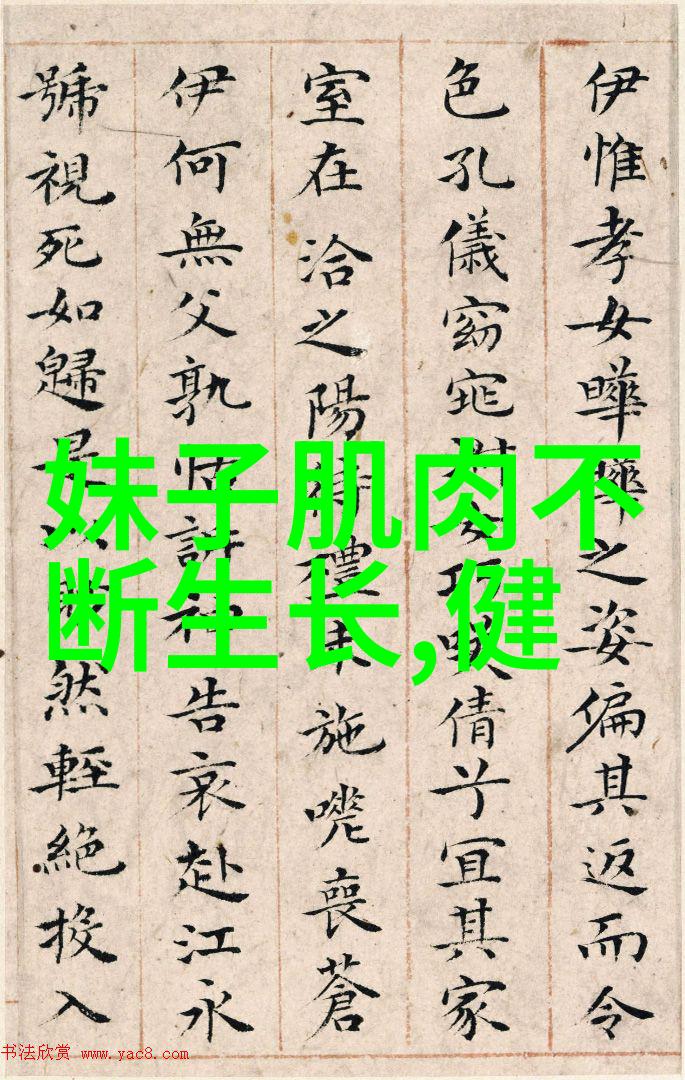 伊惟孝女曄曄之姿偏其返而令
色孔儀窈窕淑女巧咲倩兮宜其家
室在洽之陽待禮未施嗟喪蒼
伊何無父孰怙訴告哀赴江永
號視死如歸是以然輕絕投入
妹子肌肉不
断生长,健
书法欣赏 www.yac8.com